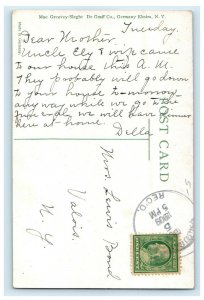 Mac Greevey-Sleght De Graff Co., Germany Elmira, N. Y.
Tuesday,
Dear Mother,
Uncle Ely & wife came
to our house this A. M.
They probably will go down
to your house to-morrow
any way while we go to the
funeral, we will have dinner
here at home.
Della
POST CARD
Mrs. Lewis Bond
Valois,
N. Y.
REC'D
5 PM
1909